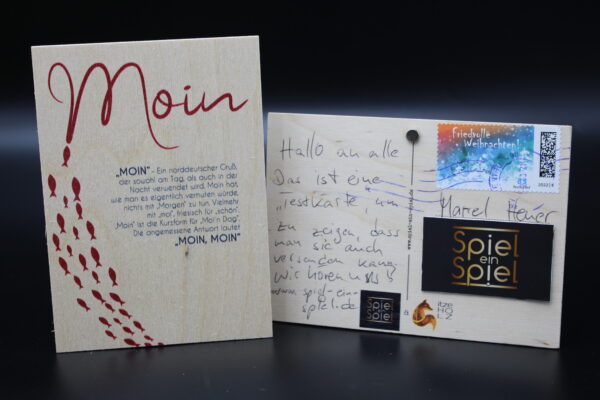 Moin
„MOIN" - Ein norddeutscher Gruß,
der sowohl am Tag, als auch in der
Nacht verwendet wird. Moin hat,
wie man es eigentlich vermuten würde,
nichts mit „Morgen" zu tun. Vielmehr
mit „moi", friesisch für „schön".
„Moin" ist die Kurzform für „Moi'n Dag".
Die angemessene Antwort lautet
„MOIN, MOIN"
Hallo an alle
Das ist eine
„Testkarte" um
zu zeigen, dass
man sie auch
versenden kann.
Wir hören uns!
www.spiel-ein-
spiel.de
Friedvolle
Weihnachten!
Marcel
Spiel
ein
Spiel
Spiel
ein
Spiel
itze
HOLZ